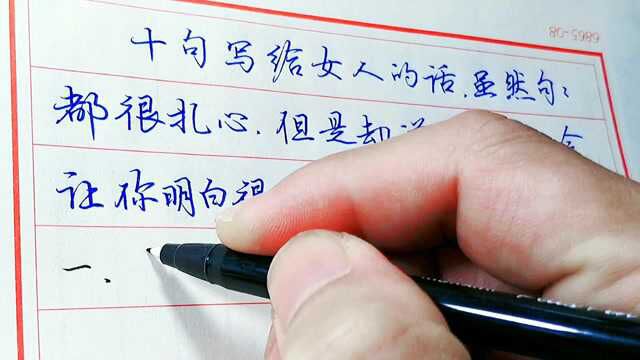 6865-08
十句写给女人的话.虽然句:
都很扎心.但是却说
让你明白很
一、